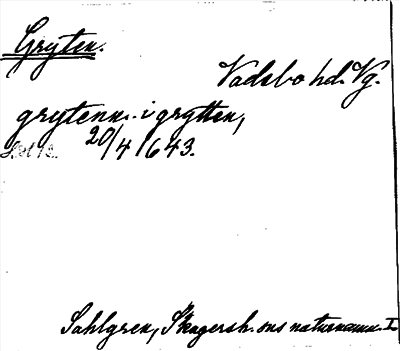 Gryten.
Vadsbo hd. Vg.
grytenn. i grytten,
20/4 1643.
Sahlgren, Skagersh. ons naturnamn. I